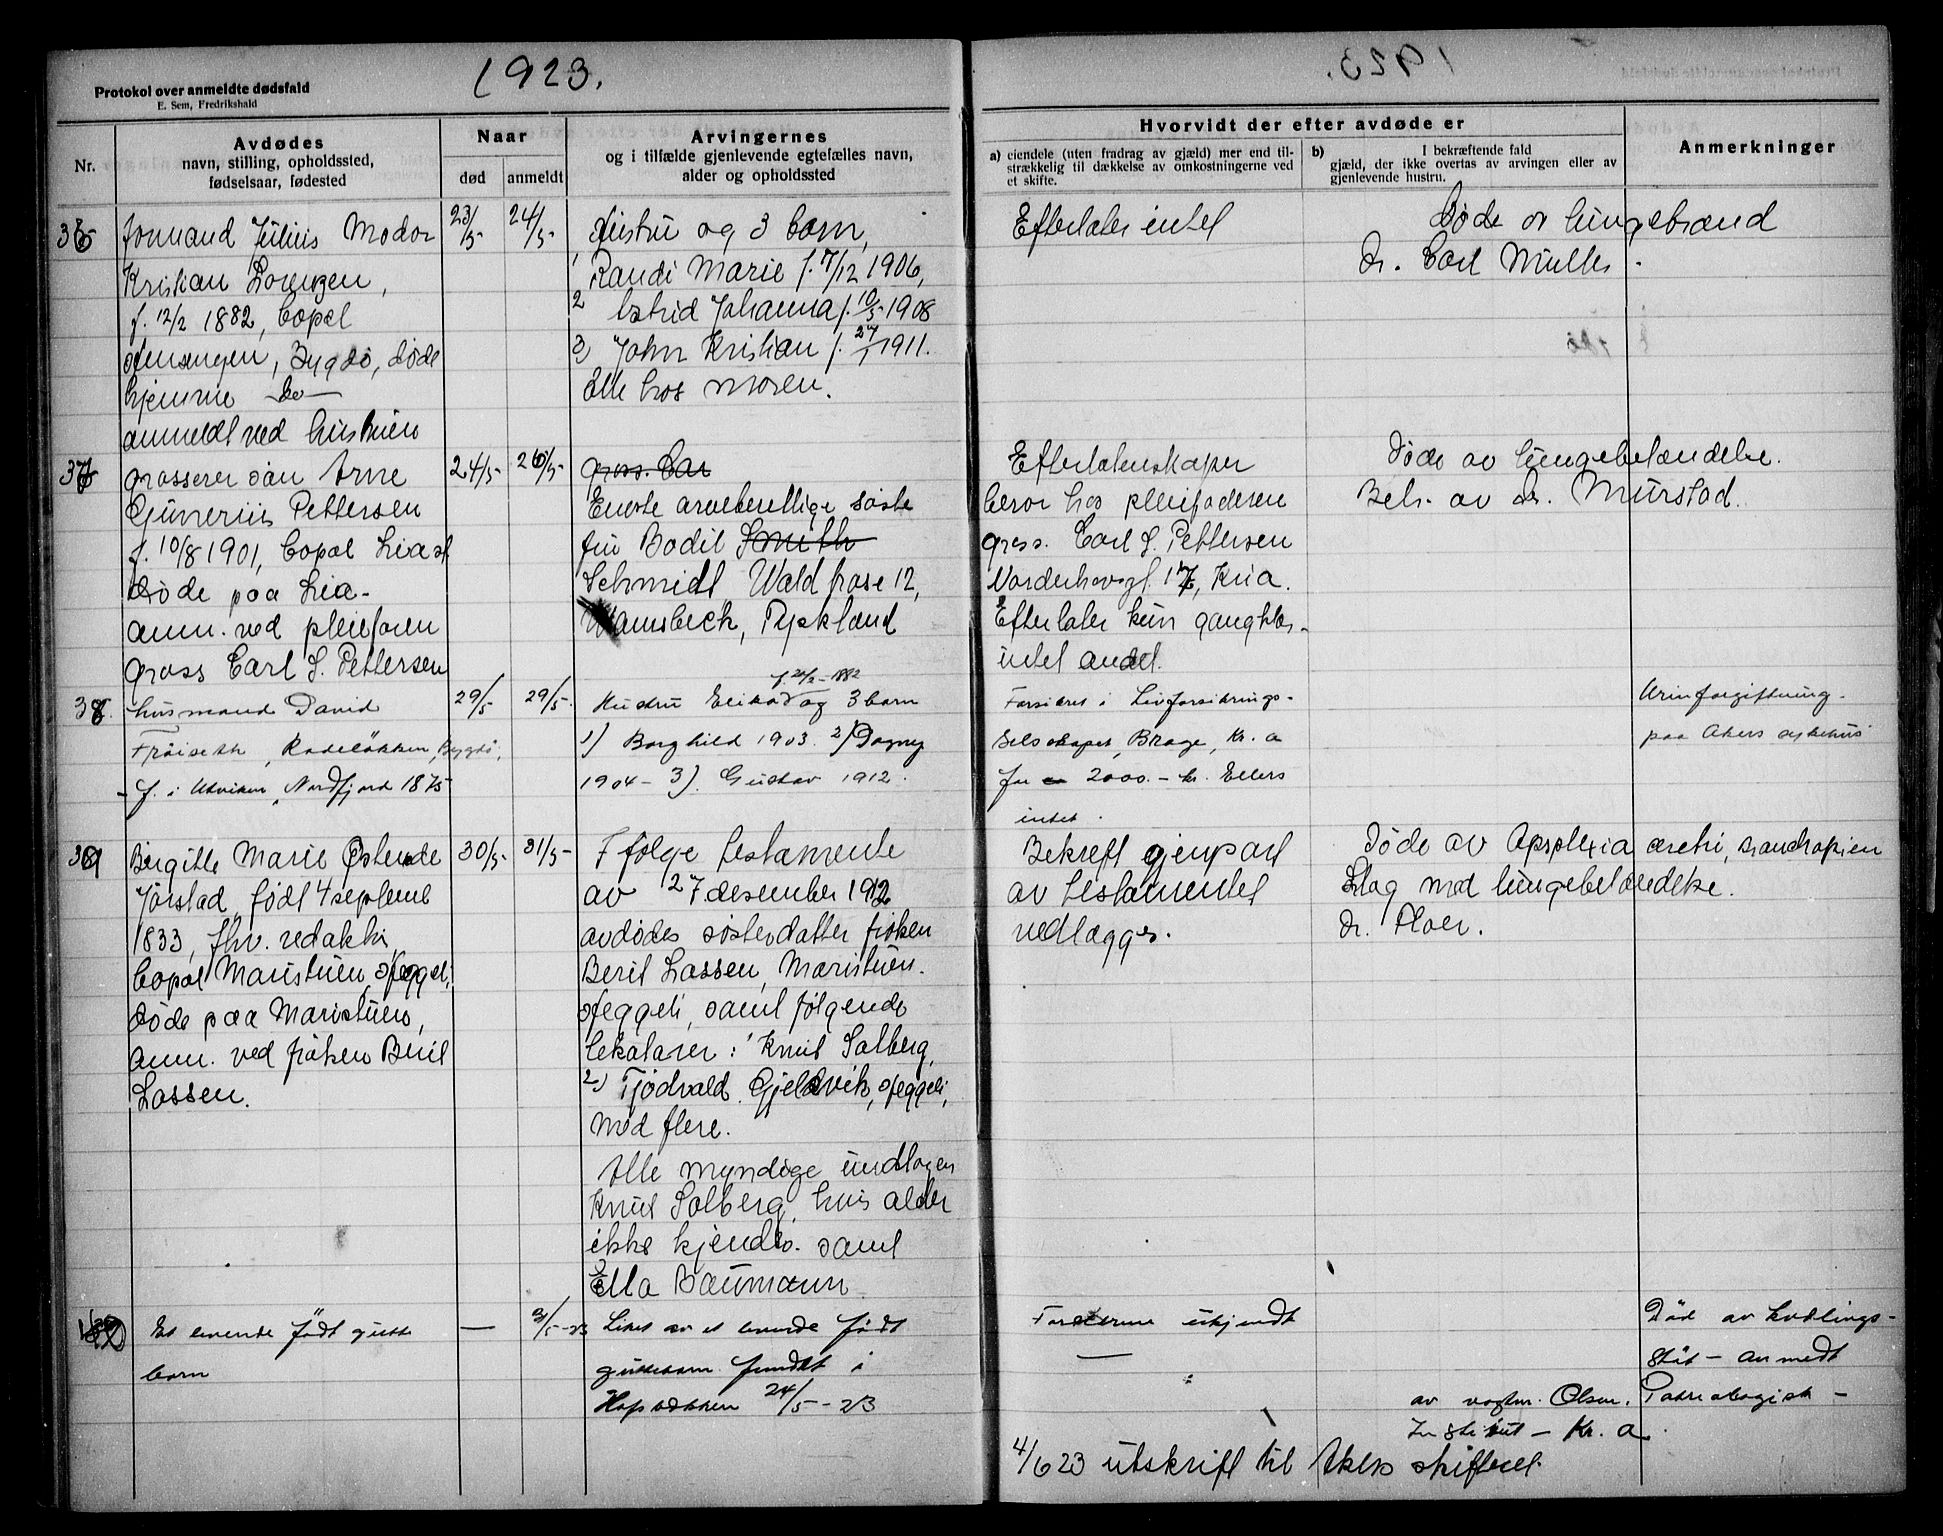 1923.
Protokol over anmeldte dødsfald
E. Sem, Fredrikshald
Nr.
Avdødes
navn, stilling, opholdssted,
fødselsaar, fødested
Naar
død
anmeldt
Arvingernes
og i tilfælde gjenlevende egtefælles navn,
alder og opholdssted
Hvorvidt der efter avdøde er
a) eiendele (uten fradrag av gjæld) mer end til-
strækkelig til dækkelse av omkostningerne ved
et skifte.
b) I bekræftende fald
gjæld, der ikke overtas av arvingen eller av
gjenlevende hustru.
Anmerkninger
36
Formand Julius Modor
Kristian Lorenzen,
f. 12/2 1882, bopæl
Hensengen, Bygdö, döde
hjemme do
anmeldt ved hustruen
23/5
24/5
Hustru og 3 barn,
1 Randi Marie f. 7/12 1906,
2 Astrid Johanna f. 10/5 1908
3) John Kristian f. 27/1 1911.
Alle hos moren.
Efterlater intet
Döde av lungebrand
Dr. Carl Müller.
37
grosserer sön Arne
Gunerius Pettersen
f. 10/8 1901, bopæl Lia st
döde paa Lia.
anm. ved pleiefaren
gross Carl S. Pettersen
24/5
26/5
gross. Car
Eneste arveberettige söster
fru Bodil Smith
Schmidt, Waldstrase 12,
Wansbeck, Tyskland
Efterlatenskaper
beror hos pleiefaderen
gross. Carl S. Pettersen
Norderhovsgt. 17, Kria.
Efterlater kun gangklær-
intet andet.
Döde av lungebetændelse.
Beh. av Dr. Mürstad.
38.
husmand David
Fröiseth, Rodelökken, Bygdö,
- f. i Utviken, Nordfjord 1875
29/5
29/5
f. 24/2-1882
Hustru Erika og 3 barn
1) Borghild 1903. 2) Dagny
1904 - 3). Gustav 1912.
Forsikret i Livforsikrings-
selskapet, Brage, Kr. a
for 2000.- kr. Ellers
intet.
Urinforgiftning-
paa Akers sykehus
39
Birgitte Marie Østende
Jörstad, født 4 septemb
1833, fhv. redaktör
bopæl Maristuen, Heggeli,
döde paa Maristuen,
anm. ved fröken Beril
Lassen.
30/5
31/5
I fölge testamente
av 27 desember 1912
avdödes sösterdatter fröken
Beril Lassen, Maristuen.
Heggeli, samt fölgende
lekatarer: 1 Knut Solberg,
2) Tjödvald Gjeldvik, Heggeli,
med flere.
Alle myndige undtagen
Knut Solberg, hvis alder
ikke kjendes. samt
3 Ella Baumann.
Bekreft gjenpart
av testamentet
vedlægges.
Döde av Apoplexia cerebri,
Slag med lungebetændelse.
Dr. Ploer.
40
Et levende födt gutte
barn
—
31/5-23
Liket av et levende födt
guttebarn fundet i
Hopsdækken 24/5-23
Forældrene ukjendt
—
Död av kvælings-
död - anmedt
av vagtm. Olsen. Patheologisk -
Institut - Kr. a.
4/6 23 utskrift til Akers skifteret.